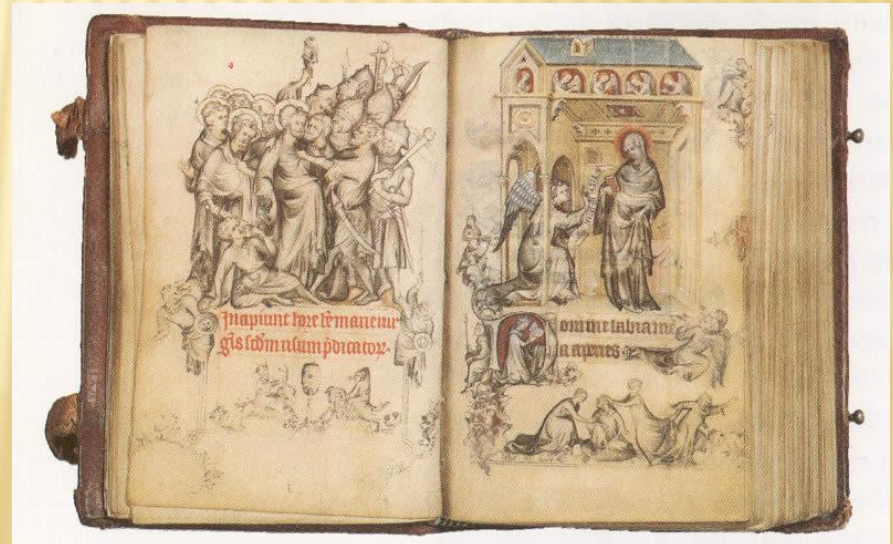 Incipiunt hore bẽ marie uir
gĩs scdm usum p̃dicator.
Domine labia me
a aperies